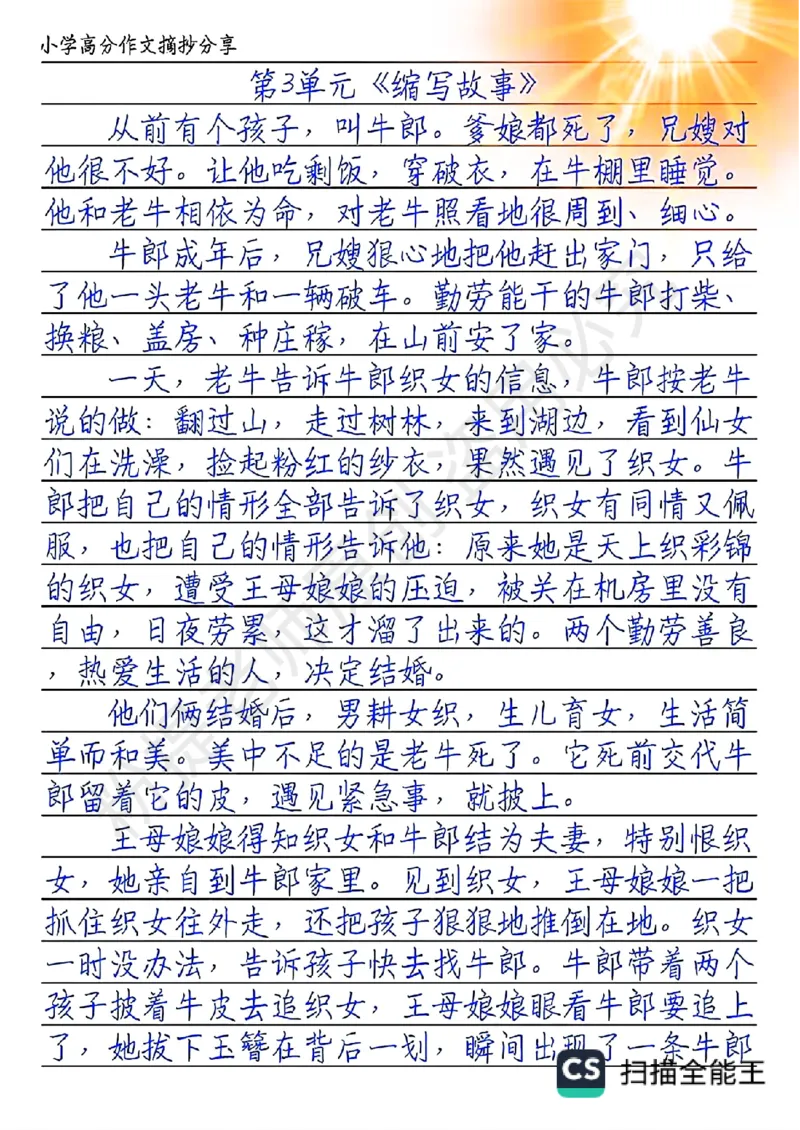 小学高分作文摘抄分享
第3单元《缩写故事》
从前有个孩子，叫牛郎。爹娘都死了，兄嫂对
他很不好。让他吃剩饭，穿破衣，在牛棚里睡觉。
他和老牛相依为命，对老牛照看地很周到、细心。
牛郎成年后，兄嫂狠心地把他赶出家门，只给
了他一头老牛和一辆破车。勤劳能干的牛郎打柴、
换粮、盖房、种庄稼，在山前安了家。
一天，老牛告诉牛郎织女的信息，牛郎按老牛
说的做：翻过山，走过树林，来到湖边，看到仙女
们在洗澡，捡起粉红的纱衣，果然遇见了织女。牛
郎把自己的情形全部告诉了织女，织女有同情又佩
服，也把自己的情形告诉他：原来她是天上织彩锦
的织女，遭受王母娘娘的压迫，被关在机房里没有
自由，日夜劳累，这才溜了出来的。两个勤劳善良
，热爱生活的人，决定结婚。
他们俩结婚后，男耕女织，生儿育女，生活简
单而和美。美中不足的是老牛死了。它死前交代牛
郎留着它的皮，遇见紧急事，就披上。
王母娘娘得知织女和牛郎结为夫妻，特别恨织
女，她亲自到牛郎家里。见到织女，王母娘娘一把
抓住织女往外走，还把孩子狠狠地推倒在地。织女
一时没办法，告诉孩子快去找牛郎。牛郎带着两个
孩子披着牛皮去追织女，王母娘娘眼看牛郎要追上
了，她拔下玉簪在背后一划，瞬间出现了一条牛郎
CS 扫描全能王